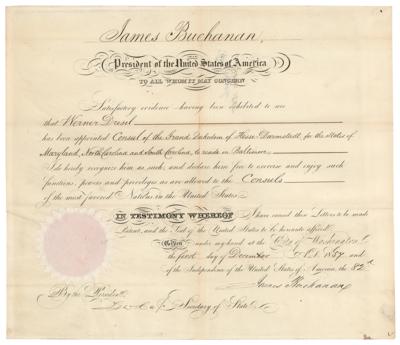 James Buchanan,
President of the United States of America
TO ALL WHOM IT MAY CONCERN
Satisfactory evidence having been exhibited to me
that Werner Dresel
has been appointed Consul of the Grand Dukedom of Hesse Darmstadt, for the States of
Maryland, North Carolina and South Carolina, to reside in Baltimore
I do hereby recognize him as such, and declare him free to exercise and enjoy such
functions, powers and privileges as are allowed to the Consuls
of the most favored Nations in the United States.
IN TESTIMONY WHEREOF I have caused these Letters to be made
Patent, and the Seal of the United States to be hereunto affixed.
Given under my hand at the City of Washington
the first day of December A.D. 1857 and
of the Independence of the United States of America, the 82d.
James Buchanan
By the President
Secretary of State